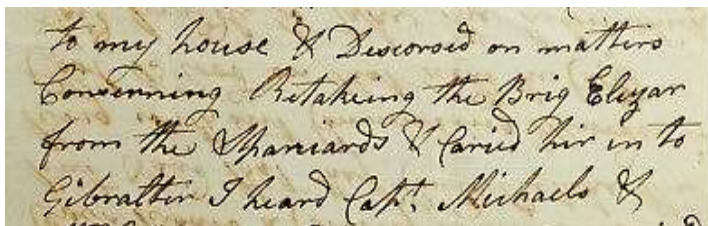 to my house & Descorsed on matters
Concerning Retakeing the Brig Elizar
from the Spaniards & Caried hir in to
Gibralter I heard Capt. Michaels &